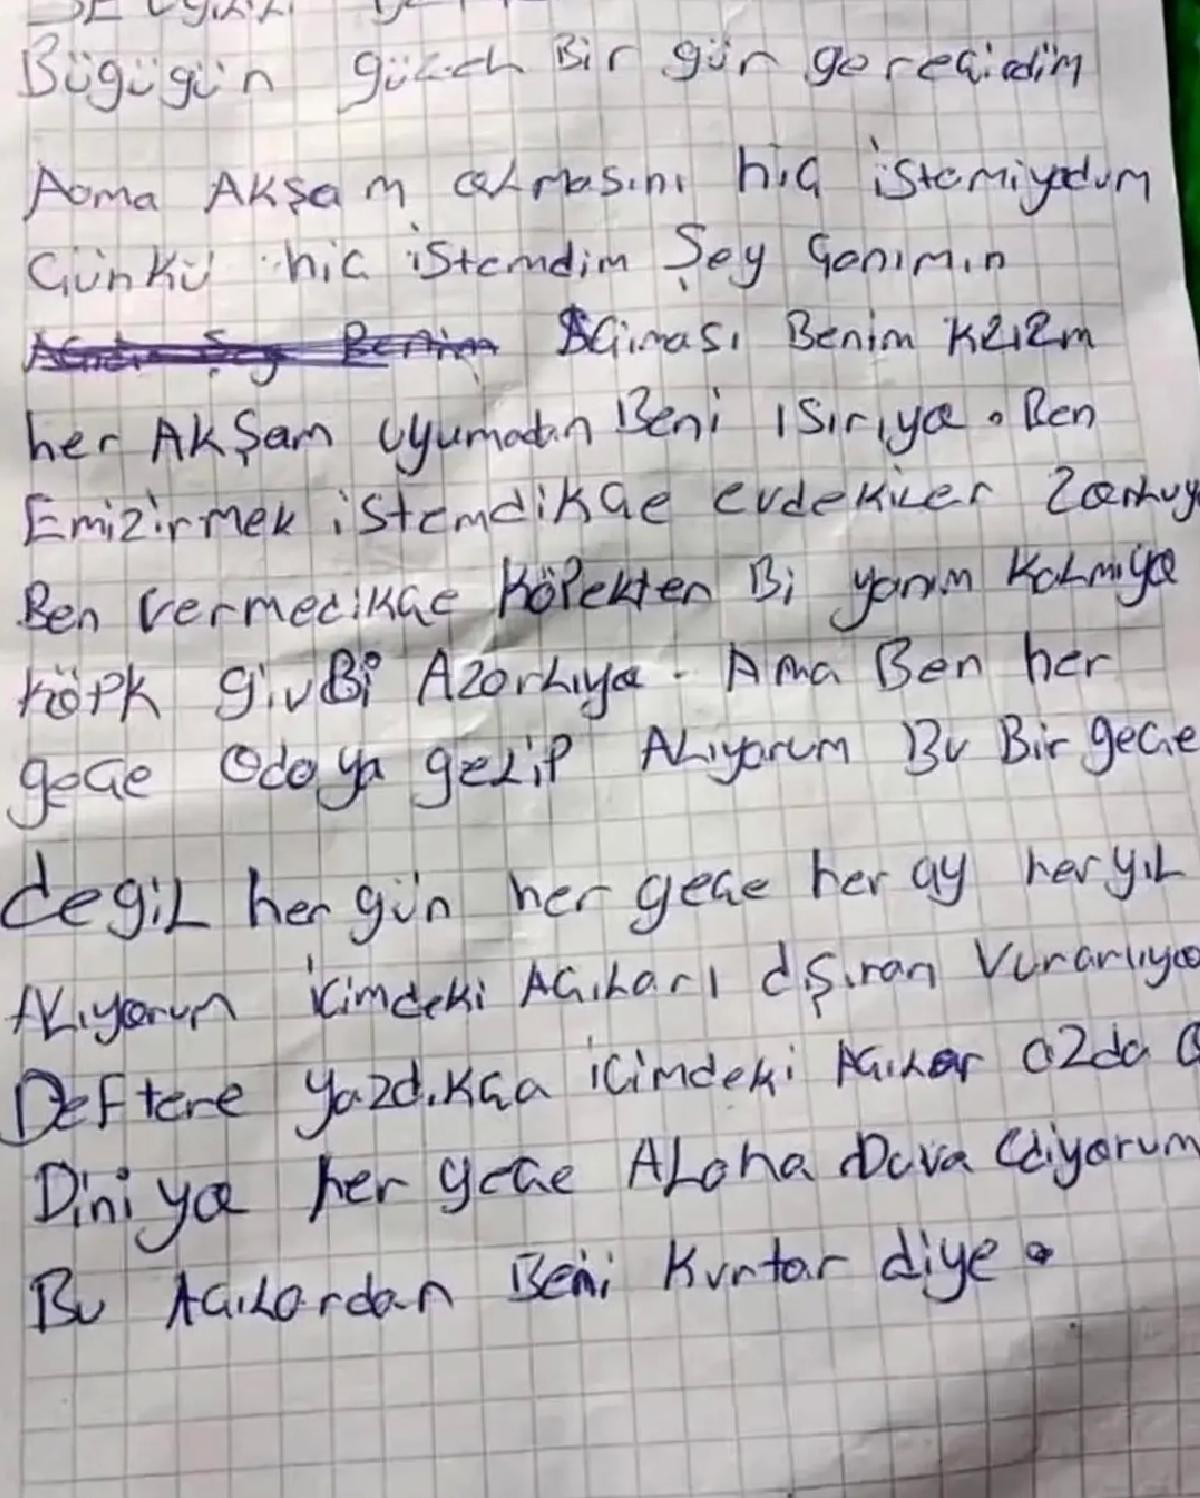 Bügügün güzel Bir gün goreçidim
Aoma AKŞam olmasını hiç istemiyodum
Günkü hiç istemdim Şey Canımın
ACıması Benim Kızım
her AKŞam uyumadan Beni ısırıya. Ben
Emizirmek istemdikçe evdekiler
Ben Vermedikçe Köpekten Bi yanım Kalmiya
Köpk givBi Azorlıya. Ama Ben her
gece Odoya gelip ALıyorum Bu Bir gece
degil her gün her gece her ay her yıl
ALıyorum içimdeki Acıları dşıran
Deftere Yazdıkça içimdeki Acılar azda
Diniya her gece ALoha Duva Ediyorum
Bu Acılardan Beni Kurtar diye.